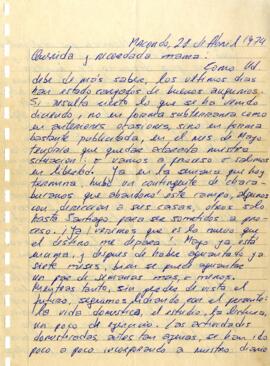 Macondo, 28 de Abril 1974
Querida y recordada mamá:
Como Ud.
debe de más saber, los últimos días
han estado cargados de buenos augurios.
Si resulta cierto lo que se ha venido
diciendo, no en forma subterránea como
en anteriores ocasiones, sino en forma
bastante publicitada, en el mes de Mayo
tendría que quedar aclarada nuestra
situación: o vamos a proceso o salimos
en libertad. Ya en la semana que hoy
termina, hubo un contingente de
que abandonó este campo, algunos
con dirección a sus casas, otros solo
hasta Santiago para ser sometidos a pro-
ceso. ¡Ya! veremos que es lo nuevo que
el destino me depara! Mayo ya está,
mamá, y después de haber aguantado ya
siete meses, bien se puede aguantar
un par de semanas más, o menos.
Mientras tanto, sin perder de vista el
futuro, seguimos lidiando por el presente:
la vida doméstica, el estudio, la lectura,
un poco de ejercicio. Las actividades
domésticas, antes tan ajenas, se han ido
poco a poco incorporando a nuestro diario